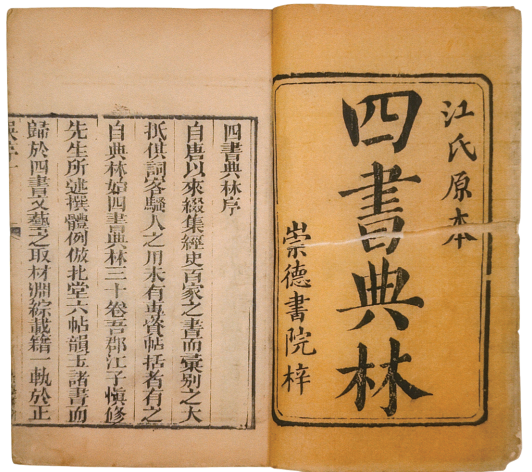 江氏原本
四書典林
崇德書院梓
四書典林序
自唐以來綴集經史百家之書而彙別之大
抵供詞客騷人之用未有專資帖括者有之
自典林始四書典林三十卷吾郡江子慎修
先生所述撰體例倣北堂六帖韻玉諸書而
歸於四書文藝之取材淵綜載籍一軌於正